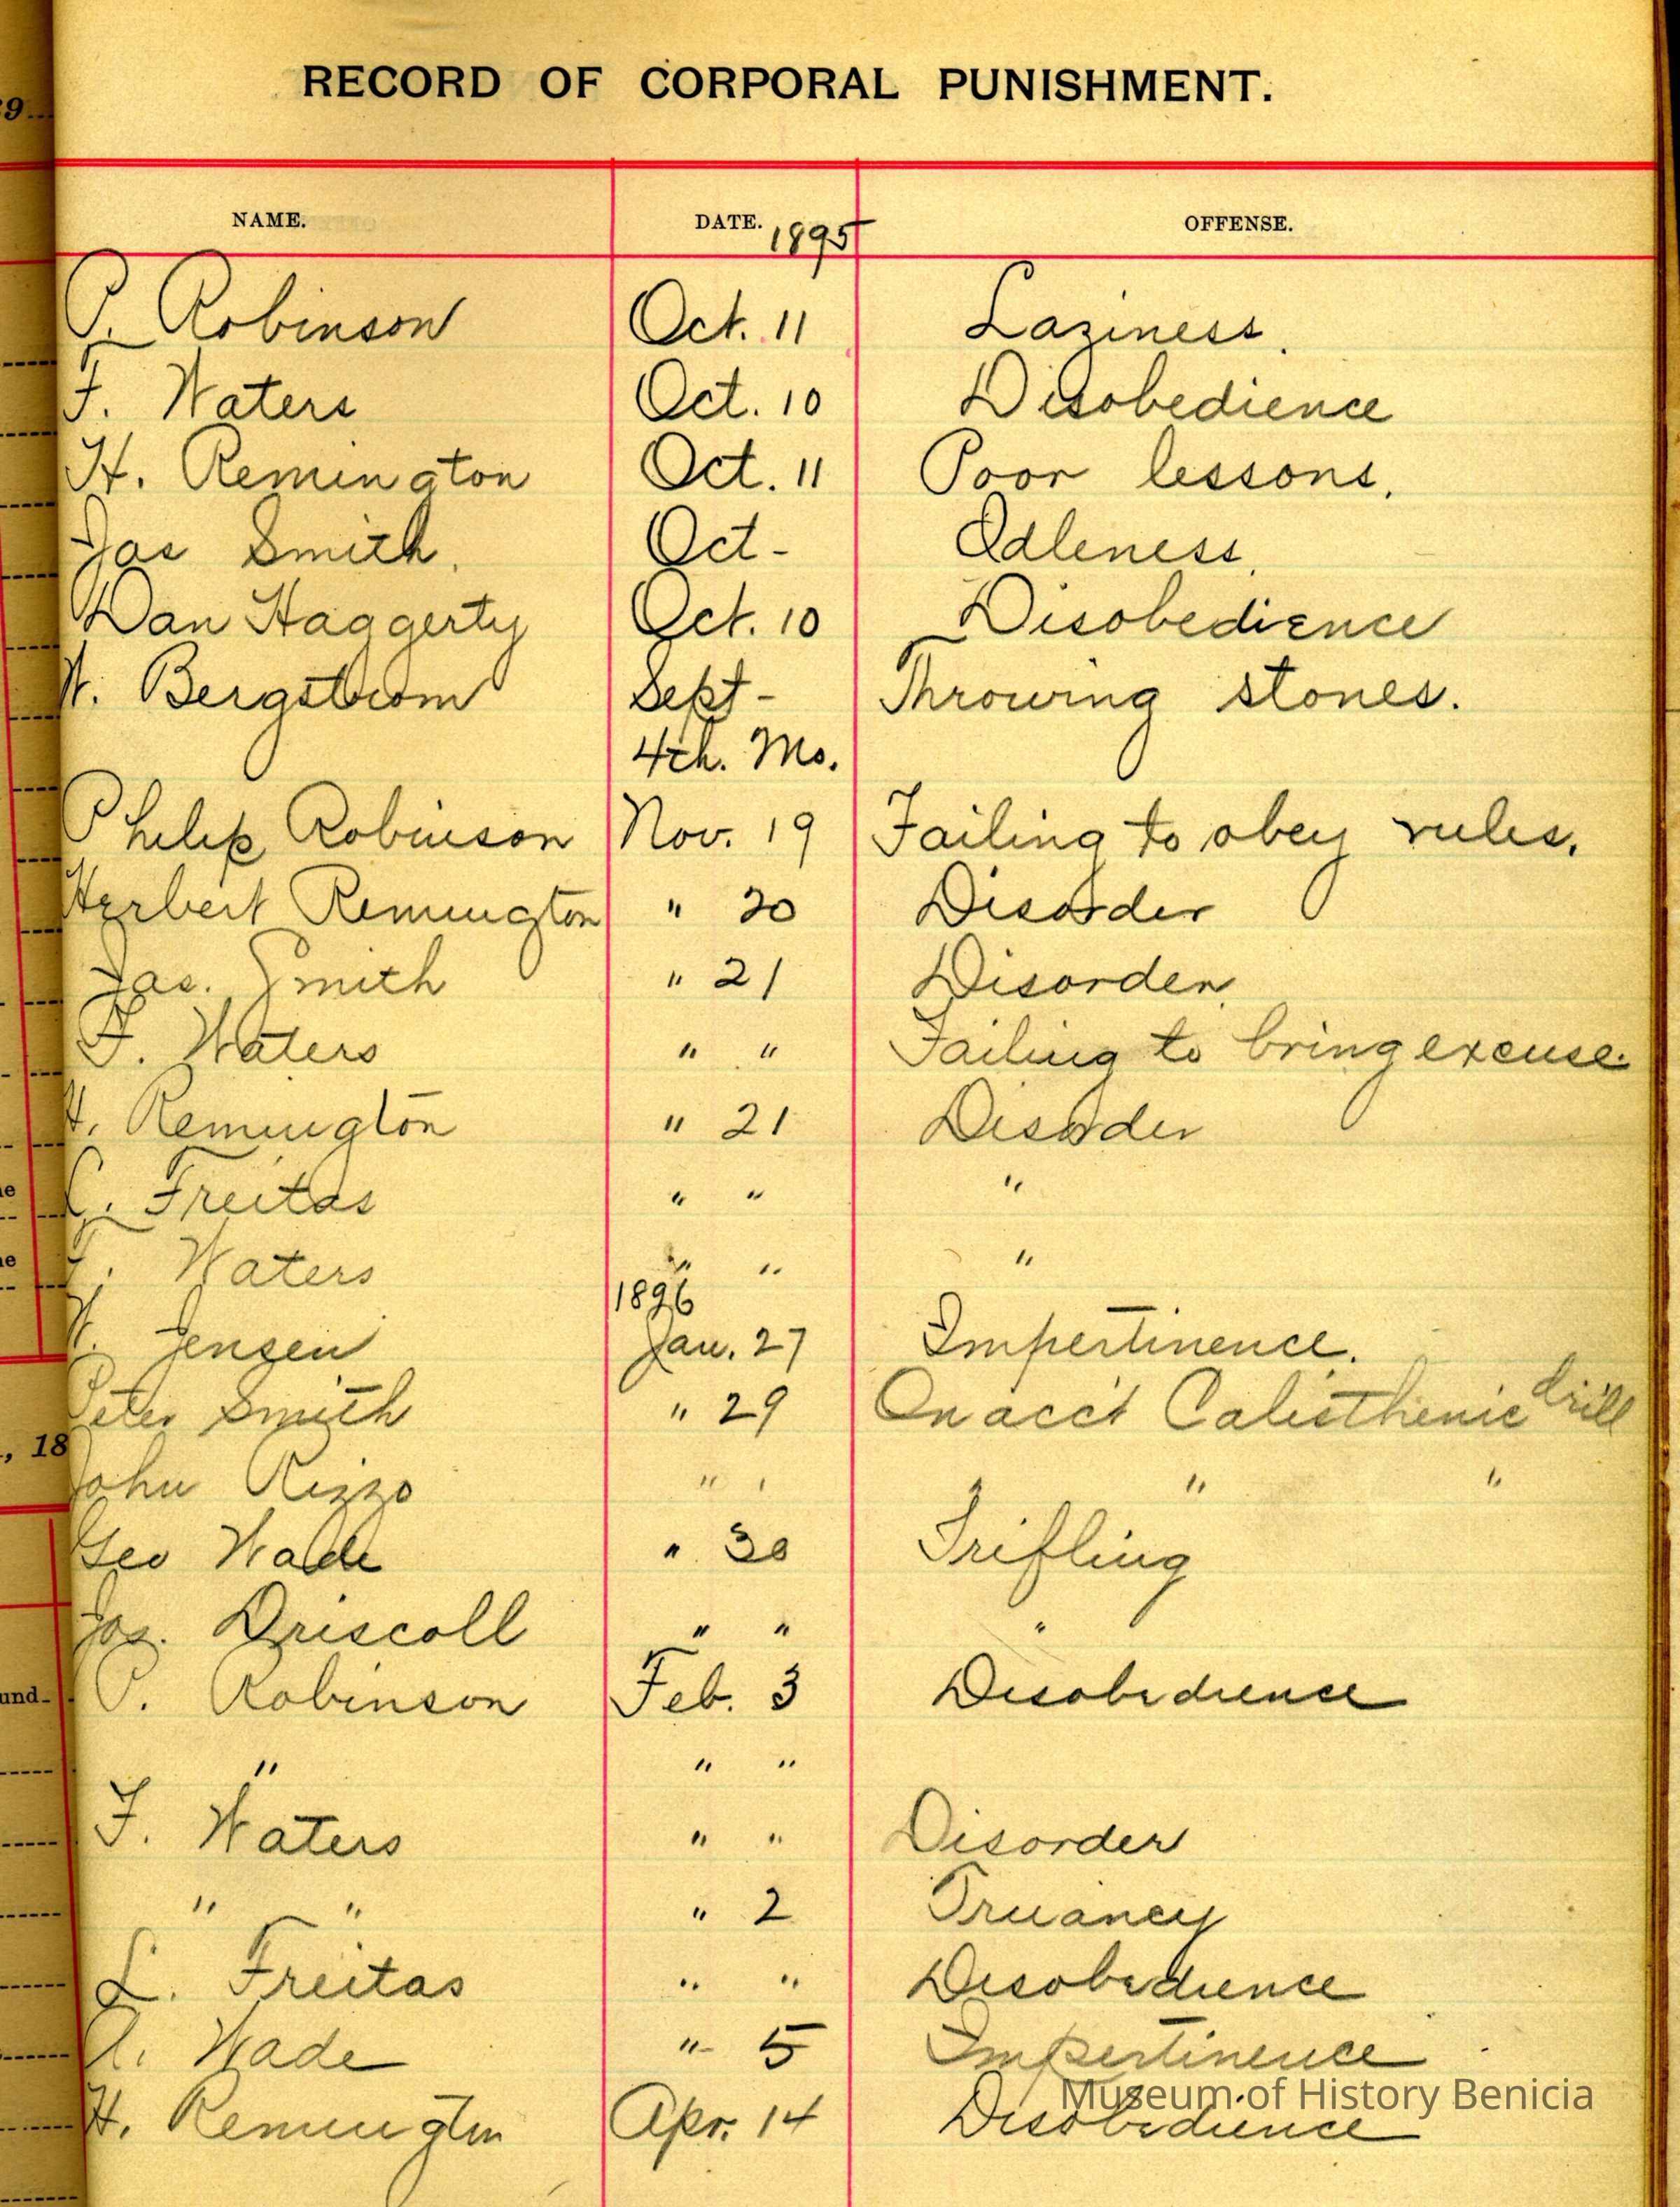 RECORD OF CORPORAL PUNISHMENT.
NAME. DATE. 1895 OFFENSE.
P. Robinson Oct. 11 Laziness.
F. Waters Oct. 10 Disobedience
H. Remington Oct. 11 Poor lessons.
Jas Smith. Oct - Idleness.
Dan Haggerty Oct. 10 Disobedience
W. Bergstrom Sept - Throwing stones.
4th. Mo.
Philip Robinson Nov. 19 Failing to obey rules.
Herbert Remington " 20 Disorder
Jas. Smith " 21 Disorder
F. Waters " " Failing to bring excuse.
H. Remington " 21 Disorder
Freitas " " "
Waters " " "
1896
Jensen Jan. 27 Impertinence.
Peter Smith " 29 On acc't Calisthenic drill
John Rizzo " " " "
Geo Wade " 30 Trifling
Jas. Driscoll " " "
P. Robinson Feb. 3 Disobedience
" " "
F. Waters " " Disorder
" " " 2 Truancy
L. Freitas " " Disobedience
Wade " 5 Impertinence
H. Remington Apr. 14 Disobedience
Museum of History Benicia
9
, 18
und-